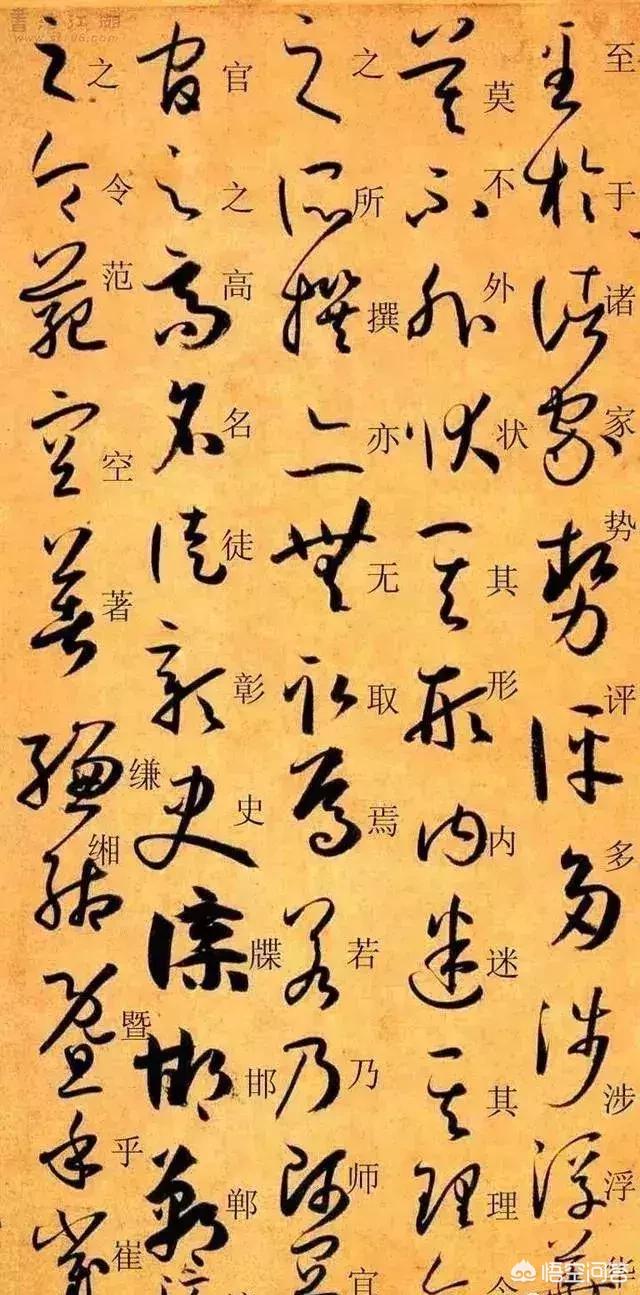 至于诸家势评多涉浮华
莫不外状其形内迷其理今
之所撰亦无取焉若乃师宜
官之高名徒彰史牒邯郸
之令范空著缣缃暨乎崔
悟空问答